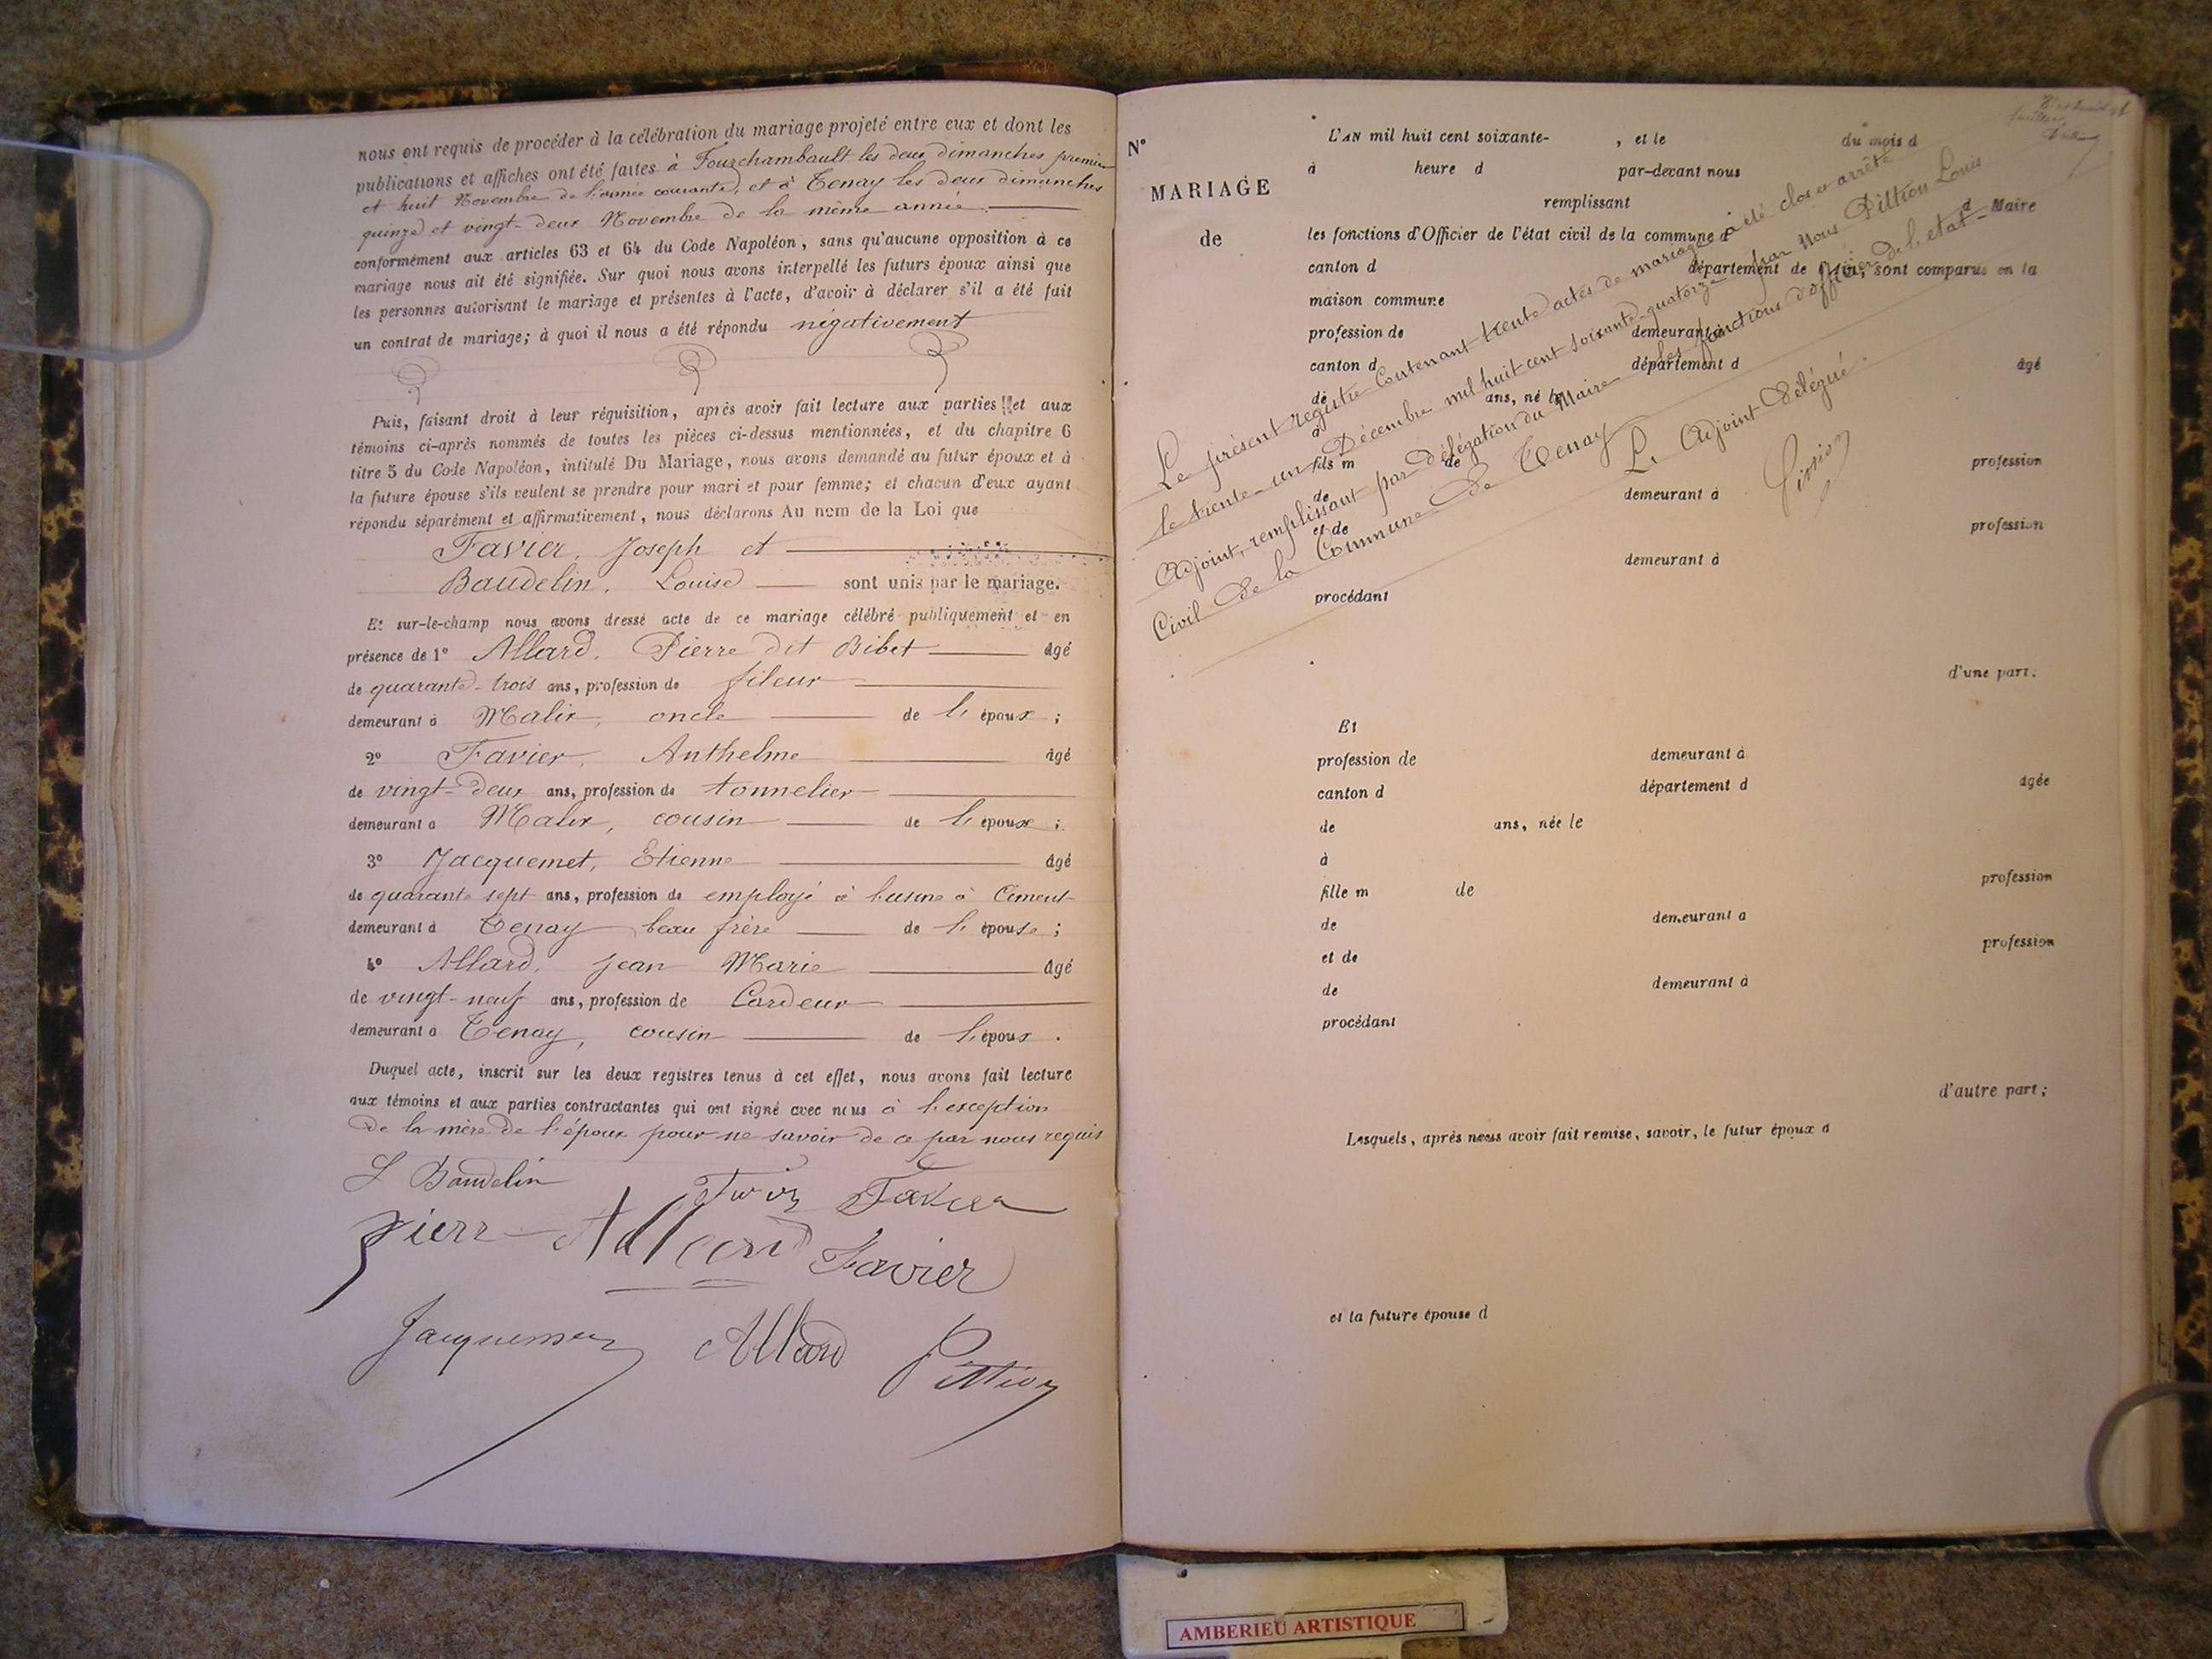 nous ont requis de procéder à la célébration du mariage projeté entre eux et dont les
publications et affiches ont été faites à Fourchambault les deux dimanches premier
et huit Novembre de l'année courante, et à Tenay les deux dimanches
quinze et vingt-deux Novembre de la même année.
conformément aux articles 63 et 64 du Code Napoléon, sans qu'aucune opposition à ce
mariage nous ait été signifiée. Sur quoi nous avons interpellé les futurs époux ainsi que
les personnes autorisant le mariage et présentes à l'acte, d'avoir à déclarer s'il a été fait
un contrat de mariage; à quoi il nous a été répondu négativement
Puis, faisant droit à leur réquisition, après avoir fait lecture aux parties et aux
témoins ci-après nommés de toutes les pièces ci-dessus mentionnées, et du chapitre 6
titre 5 du Code Napoléon, intitulé Du Mariage, nous avons demandé au futur époux et à
la future épouse s'ils veulent se prendre pour mari et pour femme; et chacun d'eux ayant
répondu séparément et affirmativement, nous déclarons Au nom de la Loi que
Favier, Joseph et
Baudelin, Louise sont unis par le mariage.
Et sur-le-champ nous avons dressé acte de ce mariage célébré publiquement et en
présence de 1° Allard, Pierre dit Bibet âgé
de quarante-trois ans, profession de fileur
demeurant à Malix, oncle de l'époux ;
2° Favier, Anthelme âgé
de vingt-deux ans, profession de tonnelier
demeurant à Malix, cousin de l'époux ;
3° Jacquemet, Etienne âgé
de quarante sept ans, profession de employé à l'usine à Ciment
demeurant à Tenay beau frère de l'épouse ;
4° Allard, Jean Marie âgé
de vingt-neuf ans, profession de Cardeur
demeurant à Tenay, cousin de l'époux .
Duquel acte, inscrit sur les deux registres tenus à cet effet, nous avons fait lecture
aux témoins et aux parties contractantes qui ont signé avec nous à l'exception
de la mère de l'époux pour ne savoir de ce par nous requis
L Baudelin Favier
Pierre Allard Favier
Jacquemet Allard Pittion
N°
MARIAGE
de
L'AN mil huit cent soixante- , et le du mois d
à heure d par-devant nous
remplissant
les fonctions d'Officier de l'état civil de la commune d
d Maire
canton d département de l'Ain, sont comparus en la
maison commune
profession de demeurant à
canton d département d âgé
de ans, né le
à
fils m de profession
de demeurant à
et de profession
demeurant à
procédant
Le présent registre contenant trente actes de mariage a été clos et arrêté
le trente-un Décembre mil huit cent soixante-quatorze par Nous Pittion Louis
Adjoint, remplissant par délégation du Maire les fonctions d'officier de l'état-
Civil de la Commune de Tenay
L'Adjoint Délégué.
Pittion
d'une part.
Et
profession de demeurant à
canton d département d âgée
de ans, née le
à
fille m de profession
de demeurant à
et de profession
de demeurant à
procédant
d'autre part ;
Lesquels, après nous avoir fait remise, savoir, le futur époux d
et la future épouse d
AMBERIEU ARTISTIQUE